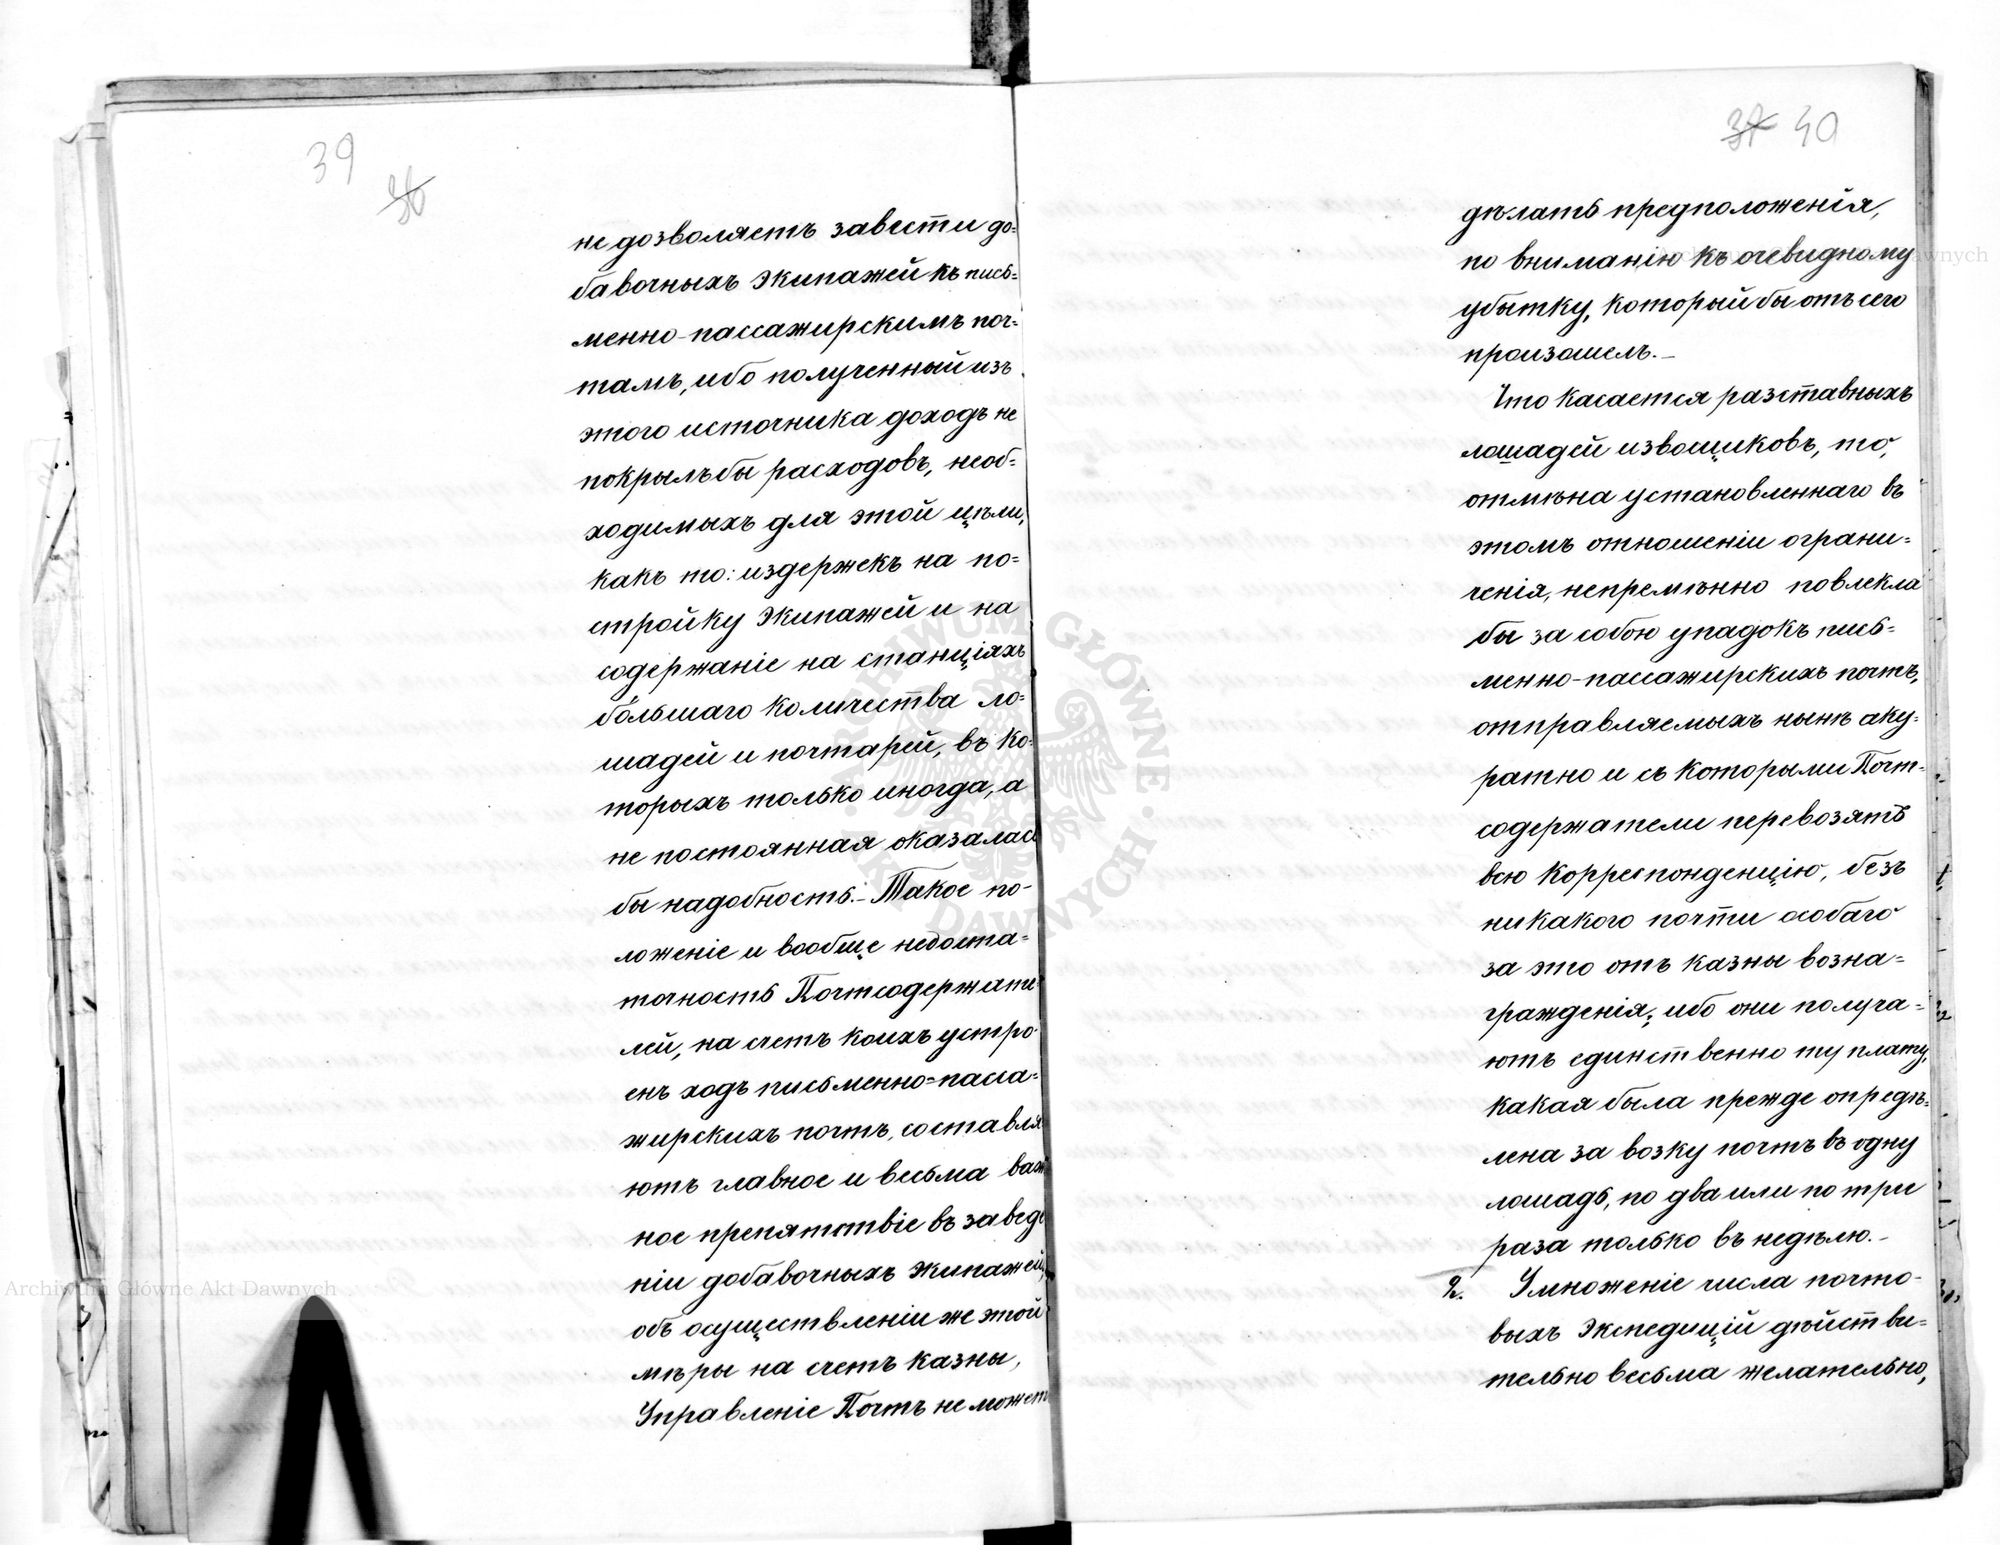 39
36
не дозволяетъ завести до=
бавочныхъ экипажей къ пись=
менно-пассажирскимъ поч=
тамъ, ибо полученный изъ
этого источника доходъ не
покрылъ бы расходовъ, необ=
ходимыхъ для этой цѣли,
какъ то: издержекъ на по=
стройку экипажей и на
содержаніе на станціяхъ
бо́льшаго количества ло=
шадей и почтарей, въ ко=
торыхъ только иногда, а
не постоянная оказалась
бы надобность.- Такое по-
ложеніе и вообще недоста=
точность Почтсодержате=
лей, на счетъ коихъ устро
енъ ходъ письменно=пасса=
жирскихъ почтъ, составля
ютъ главное и весьма важ
ное препятствіе въ заведе
ніи добавочныхъ экипажей,
объ осуществленіи же этой
мѣры на счетъ казны,
Управленіе Почтъ не можетъ
37 40
дѣлать предположенія,
по вниманію къ очевидному
убытку, который бы отъ сего
произошелъ.-
Что касается разставныхъ
лошадей извощиковъ, то,
отмѣна установленнаго въ
этомъ отношеніи ограни=
ченія, непремѣнно повлекла
бы за собою упадокъ пись=
менно-пассажирскихъ почтъ,
отправляемыхъ нынѣ аку=
ратно и съ которыми Почт-
содержатели перевозятъ
всю корреспонденцію, безъ
никакого почти особаго
за это отъ казны возна=
гражденія; ибо они получа=
ютъ единственно ту плату,
какая была прежде опредѣ=
лена за возку почтъ въ одну
лошадь, по два или по три
раза только въ недѣлю.-
2. Умноженіе числа почто-
выхъ Экспедицій дѣйстви=
тельно весьма желательно,
Archiwum Główne Akt Dawnych
Archiwum Główne Akt Dawnych
ARCHIWUM GŁÓWNE AKT DAWNYCH